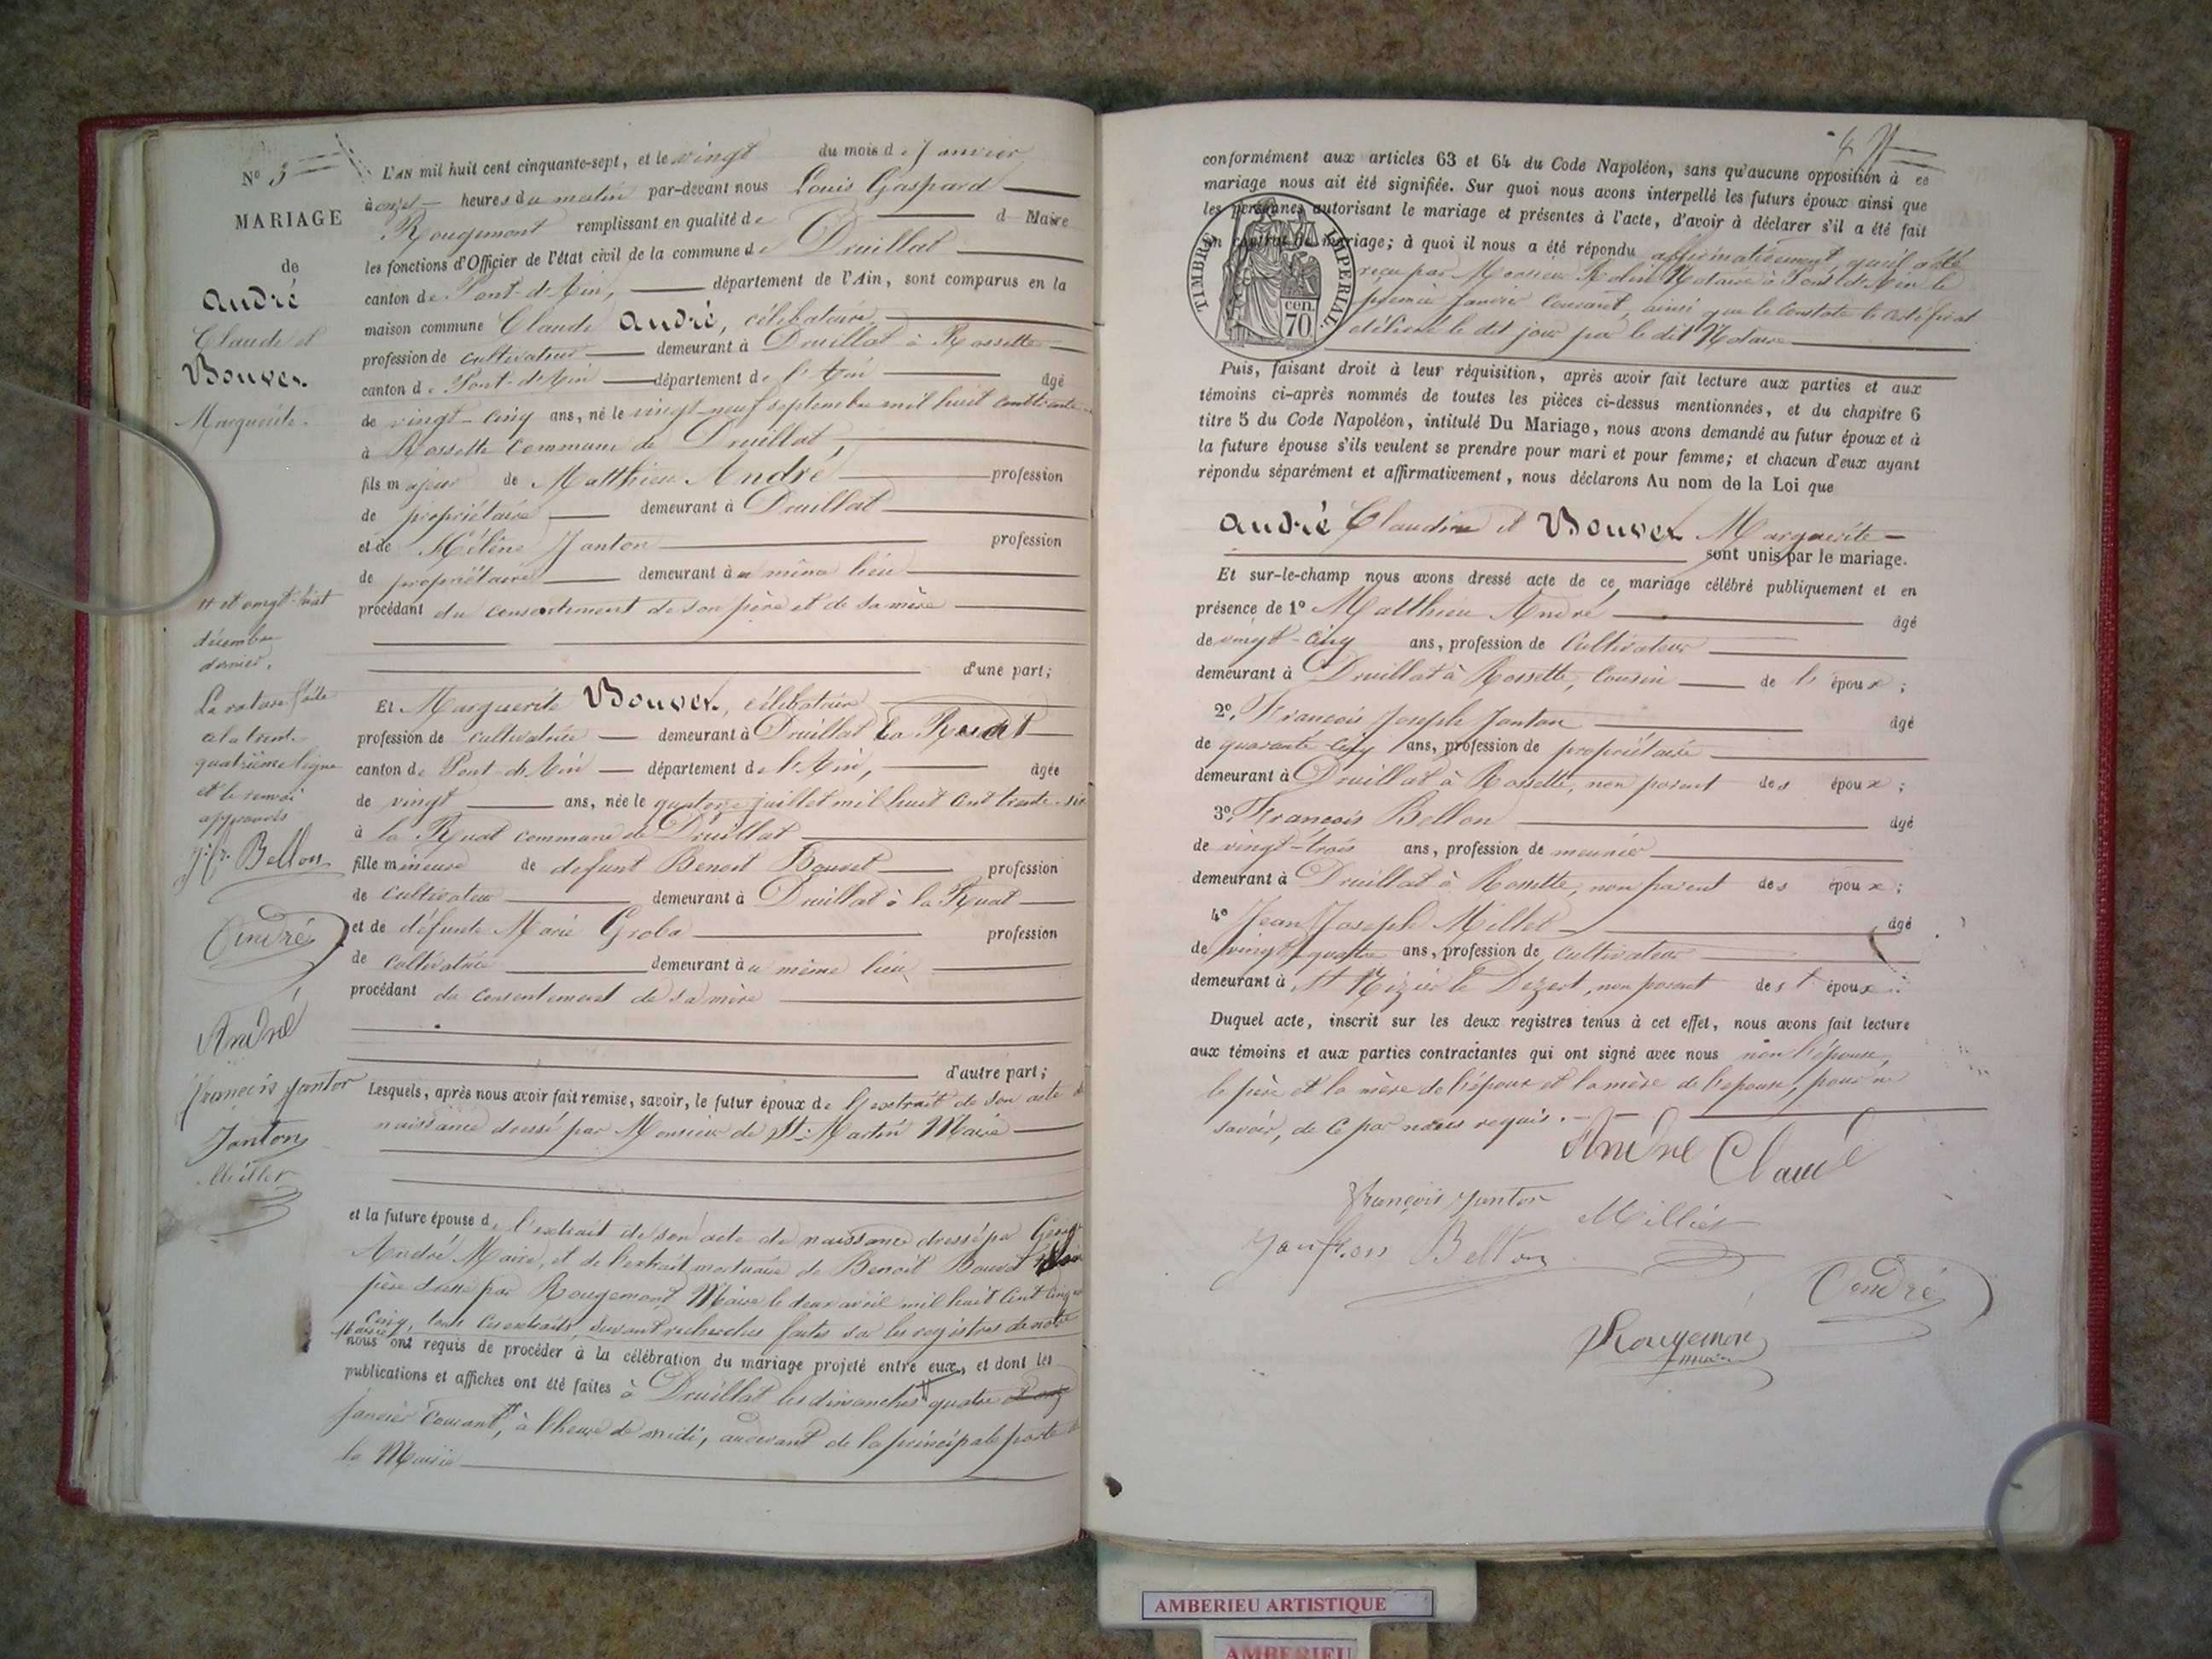 N° 3
MARIAGE
de
André
Claude et
Bouvet
Marguerite.
L'AN mil huit cent cinquante-sept, et le vingt du mois de Janvier
à onze heures du matin par-devant nous Louis Gaspard
Rougemont remplissant en qualité de d Maire
les fonctions d'Officier de l'état civil de la commune de Druillat
canton de Pont-d'Ain, département de l'Ain, sont comparus en la
maison commune Claude André, célibataire,
profession de cultivateur demeurant à Druillat à Rossette
canton de Pont-d'Ain département de l'Ain âgé
de vingt-cinq ans, né le vingt-neuf septembre mil huit cent trente
à Rossette commune de Druillat,
fils majeur de Matthieu André profession
de propriétaire demeurant à Druillat
et de Hélène Janton profession
de propriétaire demeurant au même lieu
procédant du consentement de son père et de sa mère
d'une part;
# et vingt-huit
décembre
dernier.
La rature faite
à la trente
quatrième ligne
et le renvoi
approuvés
Bellon
André
André
François Janton
Janton
Millet
Et Marguerite Bouvet, célibataire
profession de cultivatrice demeurant à Druillat La Ruat
canton de Pont-d'Ain département de l'Ain, âgée
de vingt ans, née le quatorze juillet mil huit cent trente-six
à la Ruat commune de Druillat
fille mineure de defunt Benoit Bouvet profession
de cultivateur demeurant à Druillat à la Ruat
et de défunte Marie Groba profession
de cultivatrice demeurant au même lieu
procédant du consentement de sa mère
d'autre part;
Lesquels, après nous avoir fait remise, savoir, le futur époux de l'extrait de son acte de
naissance dressé par Monsieur de St-Martin Maire
et la future épouse de l'extrait de son acte de naissance dressé par
André Maire, et de l'extrait mortuaire de Benoit Bouvet
père dressé par Rougemont Maire le deux avril mil huit cent cinqte
cinq, tous ces extraits, suivant recherches faites sur les registres de notre
Mairie
nous ont requis de procéder à la célébration du mariage projeté entre eux, et dont les
publications et affiches ont été faites à Druillat les dimanches quatre
Janvier courant #, à l'heure de midi, audevant de la principale porte de
la Mairie
conformément aux articles 63 et 64 du Code Napoléon, sans qu'aucune opposition à ce
mariage nous ait été signifiée. Sur quoi nous avons interpellé les futurs époux ainsi que
les personnes autorisant le mariage et présentes à l'acte, d'avoir à déclarer s'il a été fait
un contrat de mariage; à quoi il nous a été répondu affirmativement qu'il a été
reçu par Monsieur Notaire à Pont-d'Ain le
premier Janvier courant, ainsi que le constate le certificat
délivré le dit jour par le dit Notaire
TIMBRE IMPERIAL.
70 cen.
Puis, faisant droit à leur réquisition, après avoir fait lecture aux parties et aux
témoins ci-après nommés de toutes les pièces ci-dessus mentionnées, et du chapitre 6
titre 5 du Code Napoléon, intitulé Du Mariage, nous avons demandé au futur époux et à
la future épouse s'ils veulent se prendre pour mari et pour femme; et chacun d'eux ayant
répondu séparément et affirmativement, nous déclarons Au nom de la Loi que
André Claudine et Bouvet Marguerite
sont unis par le mariage.
Et sur-le-champ nous avons dressé acte de ce mariage célébré publiquement et en
présence de 1° Matthieu André âgé
de vingt-cinq ans, profession de cultivateur
demeurant à Druillat à Rossette, cousin de l'époux;
2°, François Joseph Janton âgé
de quarante cinq ans, profession de propriétaire
demeurant à Druillat à Rossette, non parent des époux;
3° François Bellon âgé
de vingt-trois ans, profession de meunier
demeurant à Druillat à Rossette, non parent des époux;
4° Jean Joseph Millet âgé
de vingt quatre ans, profession de cultivateur
demeurant à St Nizier le Dezert, non parent des époux.
Duquel acte, inscrit sur les deux registres tenus à cet effet, nous avons fait lecture
aux témoins et aux parties contractantes qui ont signé avec nous non l'épouse,
le père et la mère de l'époux et la mère de l'épouse, pour ne
savoir, de ce par nous requis.
André Claude
François Janton Milliet
Bellon
André
Rougemont
maire
AMBERIEU ARTISTIQUE
AMBERIEU